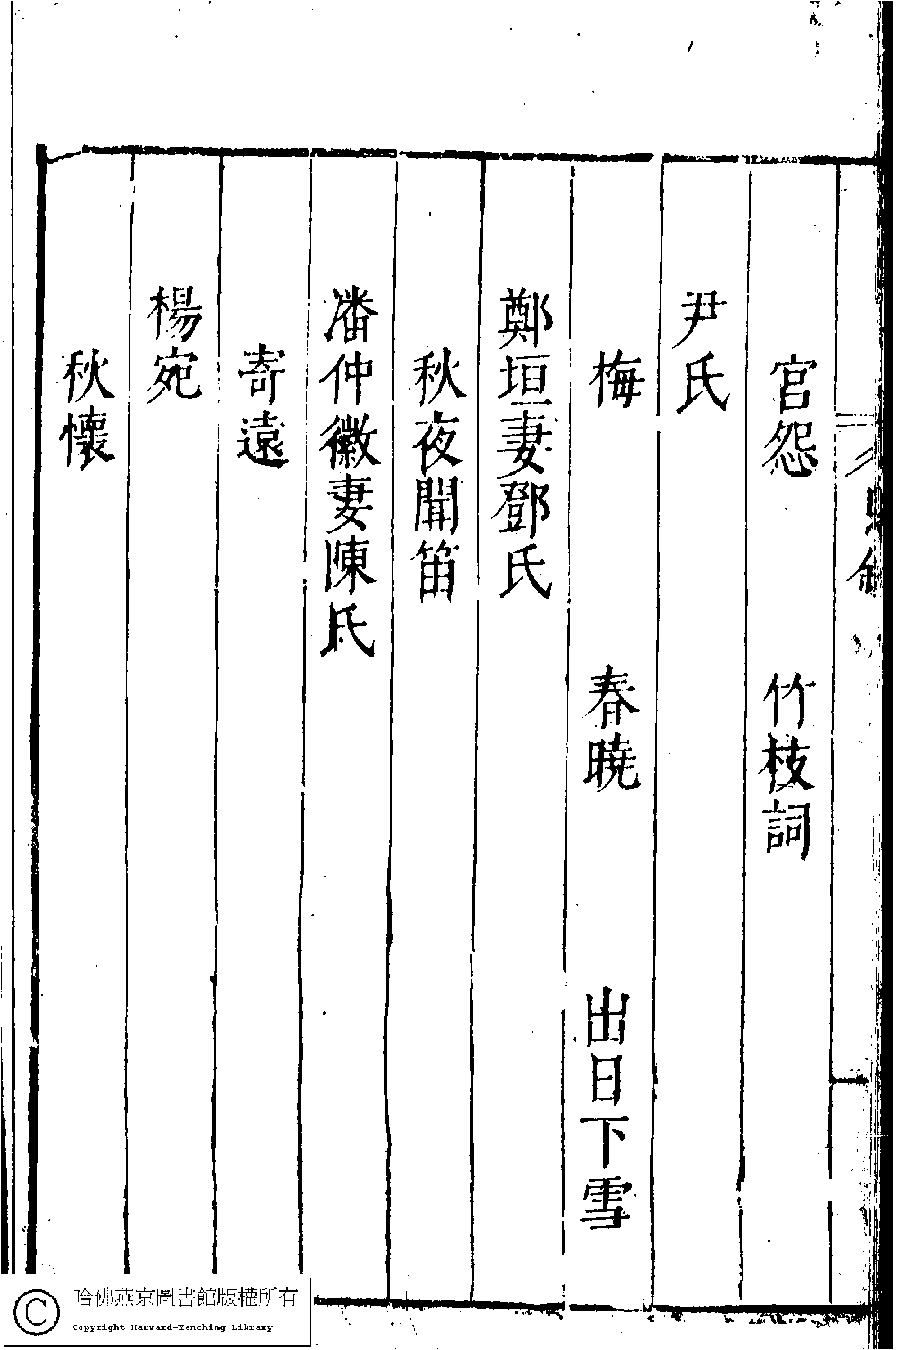 官怨　竹枝詞
尹氏
梅　春曉　出日下雪
鄭垣妻鄧氏
秋夜聞笛
潘仲徽妻陳氏
寄遠
楊宛
秋懷
哈佛燕京圖書館版權所有
Copyright Harvard-Yenching Library